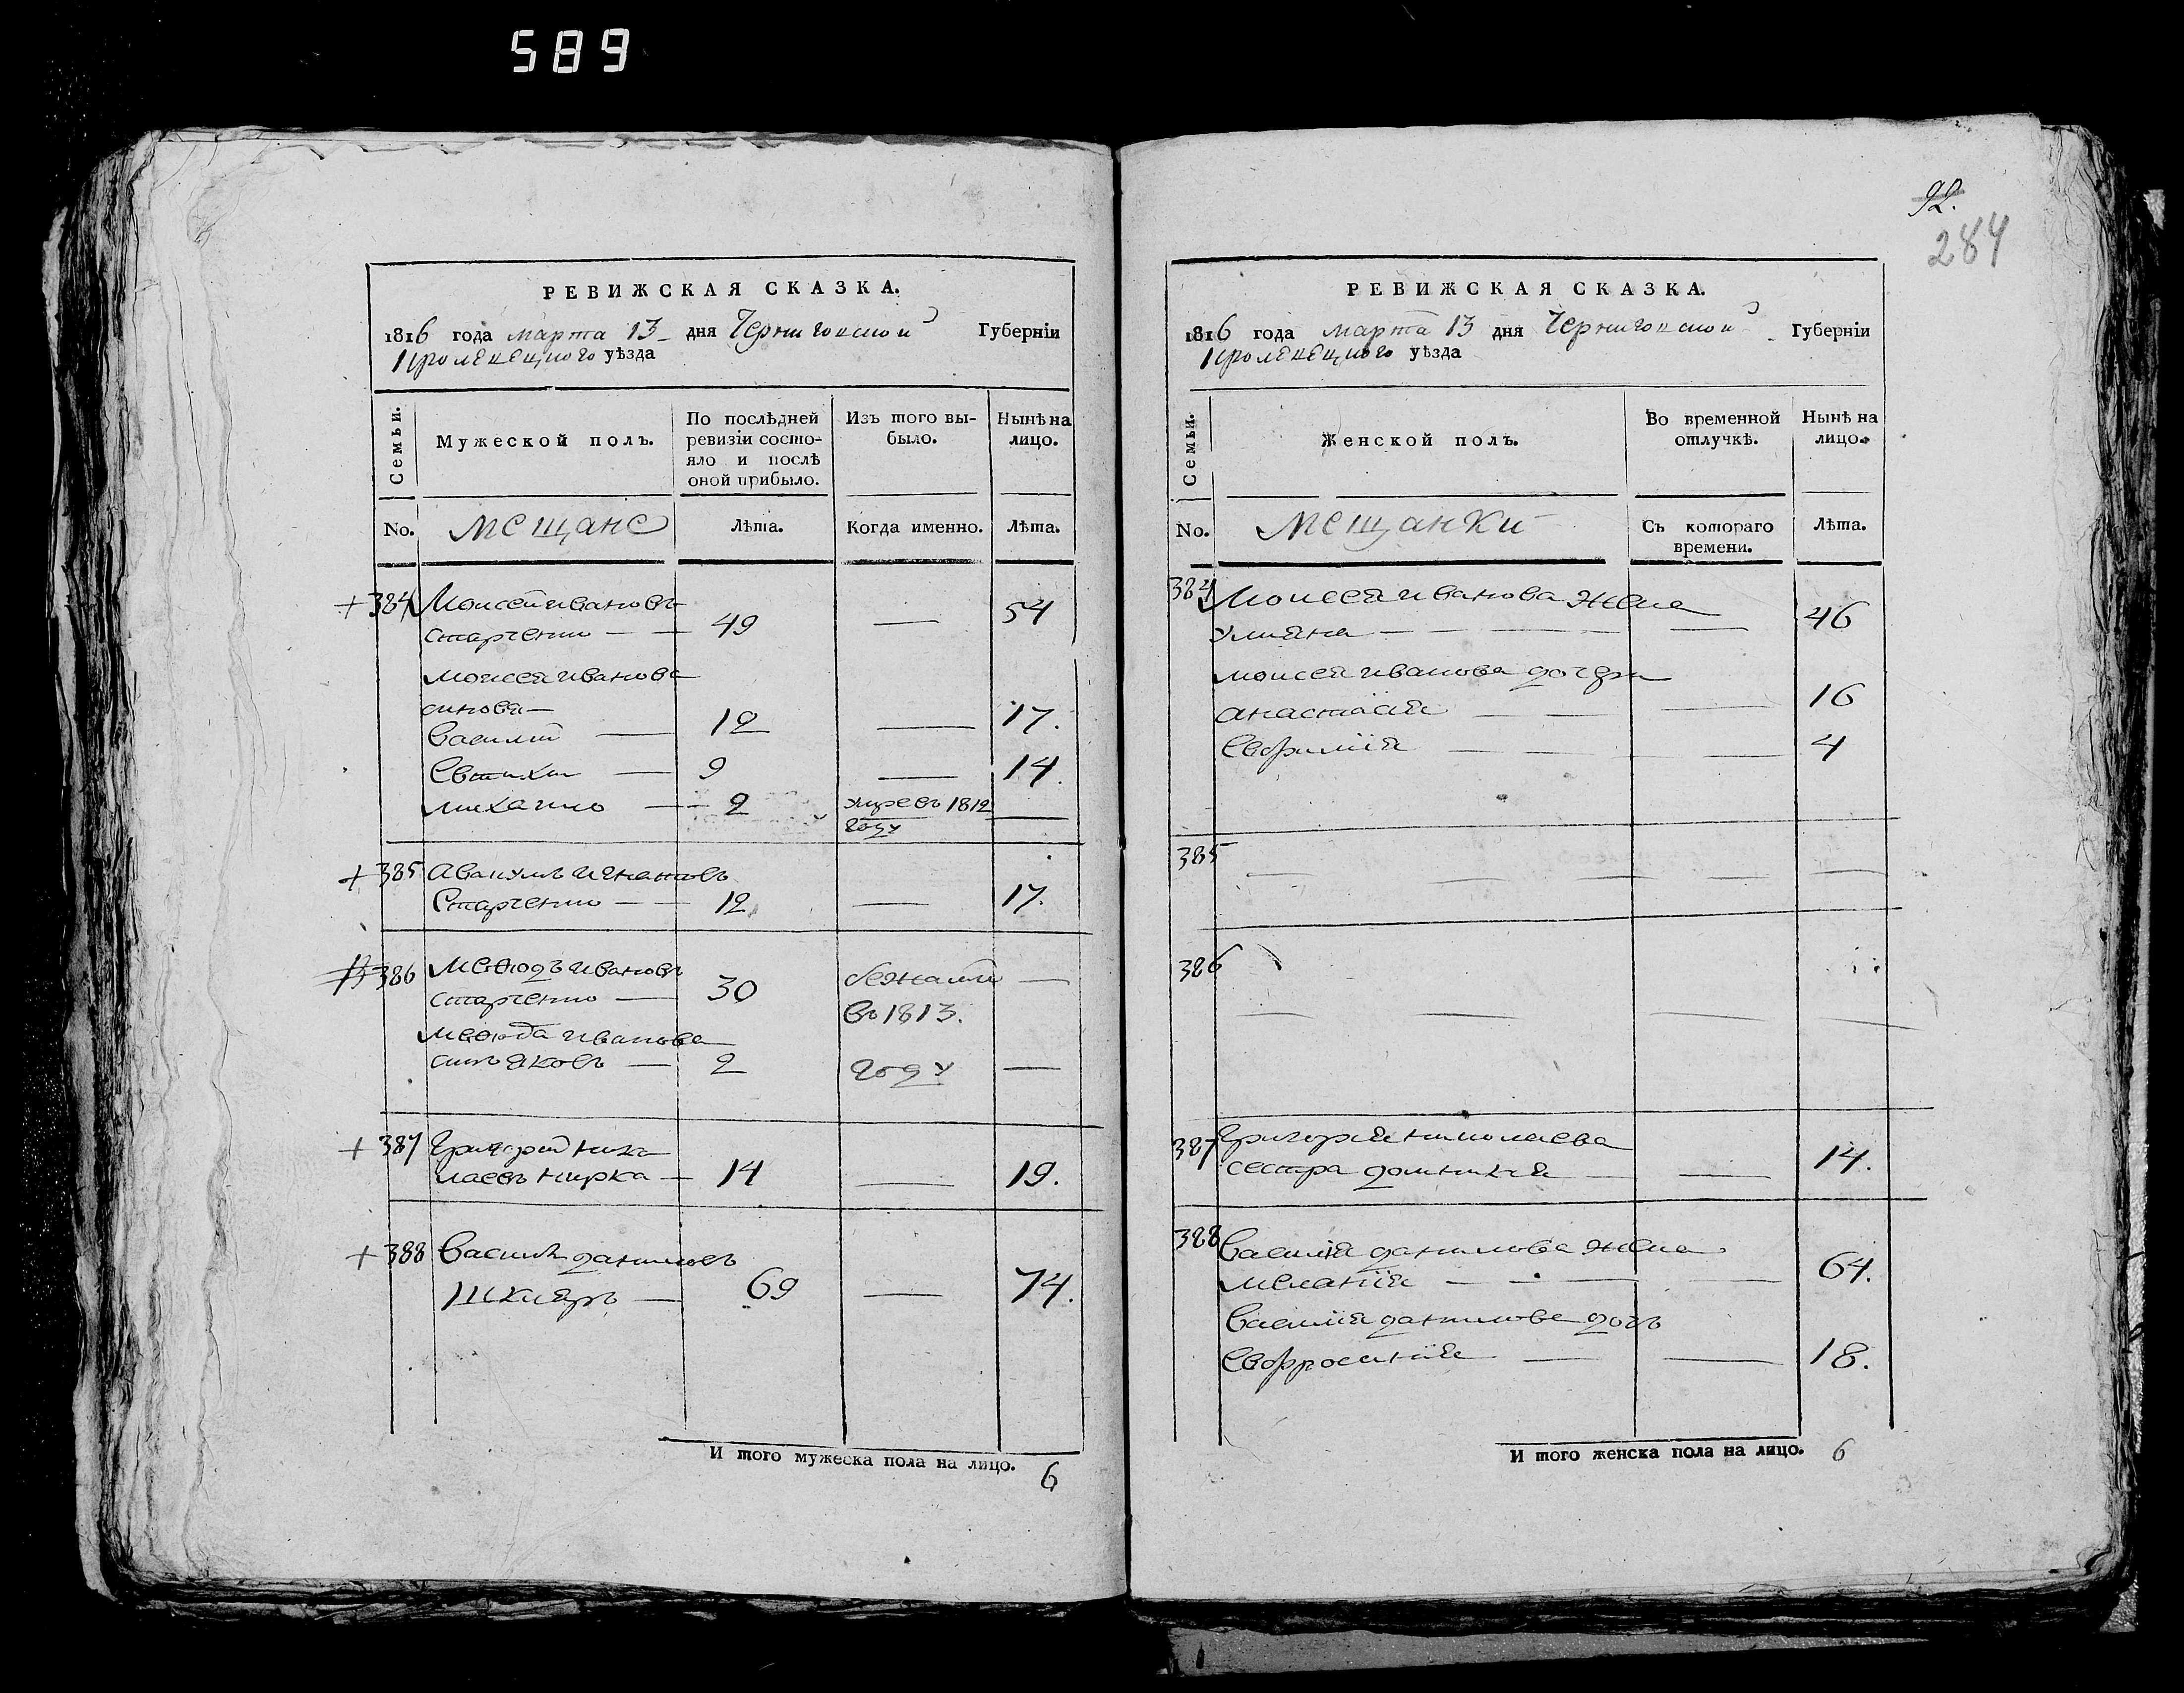 589
РЕВИЖСКАЯ СКАЗКА.
1816 года марта 13 дня Черниговской Губерніи
Кролевецкого уѣзда
Семьи.
Мужеской полъ.
По послѣдней ревизіи состо-
яло и послѣ оной прибыло.
Изъ того вы-
было.
Нынѣ на лицо.
No. Мещане Лѣта. Когда именно. Лѣта.
+384 Моисей Ивановъ
Старченко — — 49 — 54
Моисея Иванова
синовя —
Василій — 12 — 17.
Евтихи — 9 — 14.
Михаило — 2 умре въ 1812 —
году
+385 Авакумъ
Старченко — — 12 — 17.
386 Меѳодъ Ивановъ
Старченко — 30 —
въ 1813.
Меѳода Иванова
синъ Яковъ — 2 году —
+387 Григорий Нико
лаевъ Кирка — 14 — 19.
+388 Василий Даниловъ
Шкляръ — 69 — 74.
И того мужеска пола на лицо. 6
92.
284
РЕВИЖСКАЯ СКАЗКА.
1816 года марта 13 дня Черниговской Губерніи
Кролевецкого уѣзда
Семьи.
Женской полъ.
Во временной отлучкѣ.
Нынѣ на лицо.
No. Мещанки Съ котораго времени. Лѣта.
384 Моисея Иванова жена
Улияна — — — — — 46
Моисея Иванова дочери
Анастасия — — — 16
Евфимия — — — 4
385 — — — — —
386
— — — —
387 Григория Николаева
сестра Домникия — — 14.
388 Василия Данилова жена
Мелания — — — — 64.
Василия Данилова дочь
Евфросиния — — 18.
И того женска пола на лицо. 6